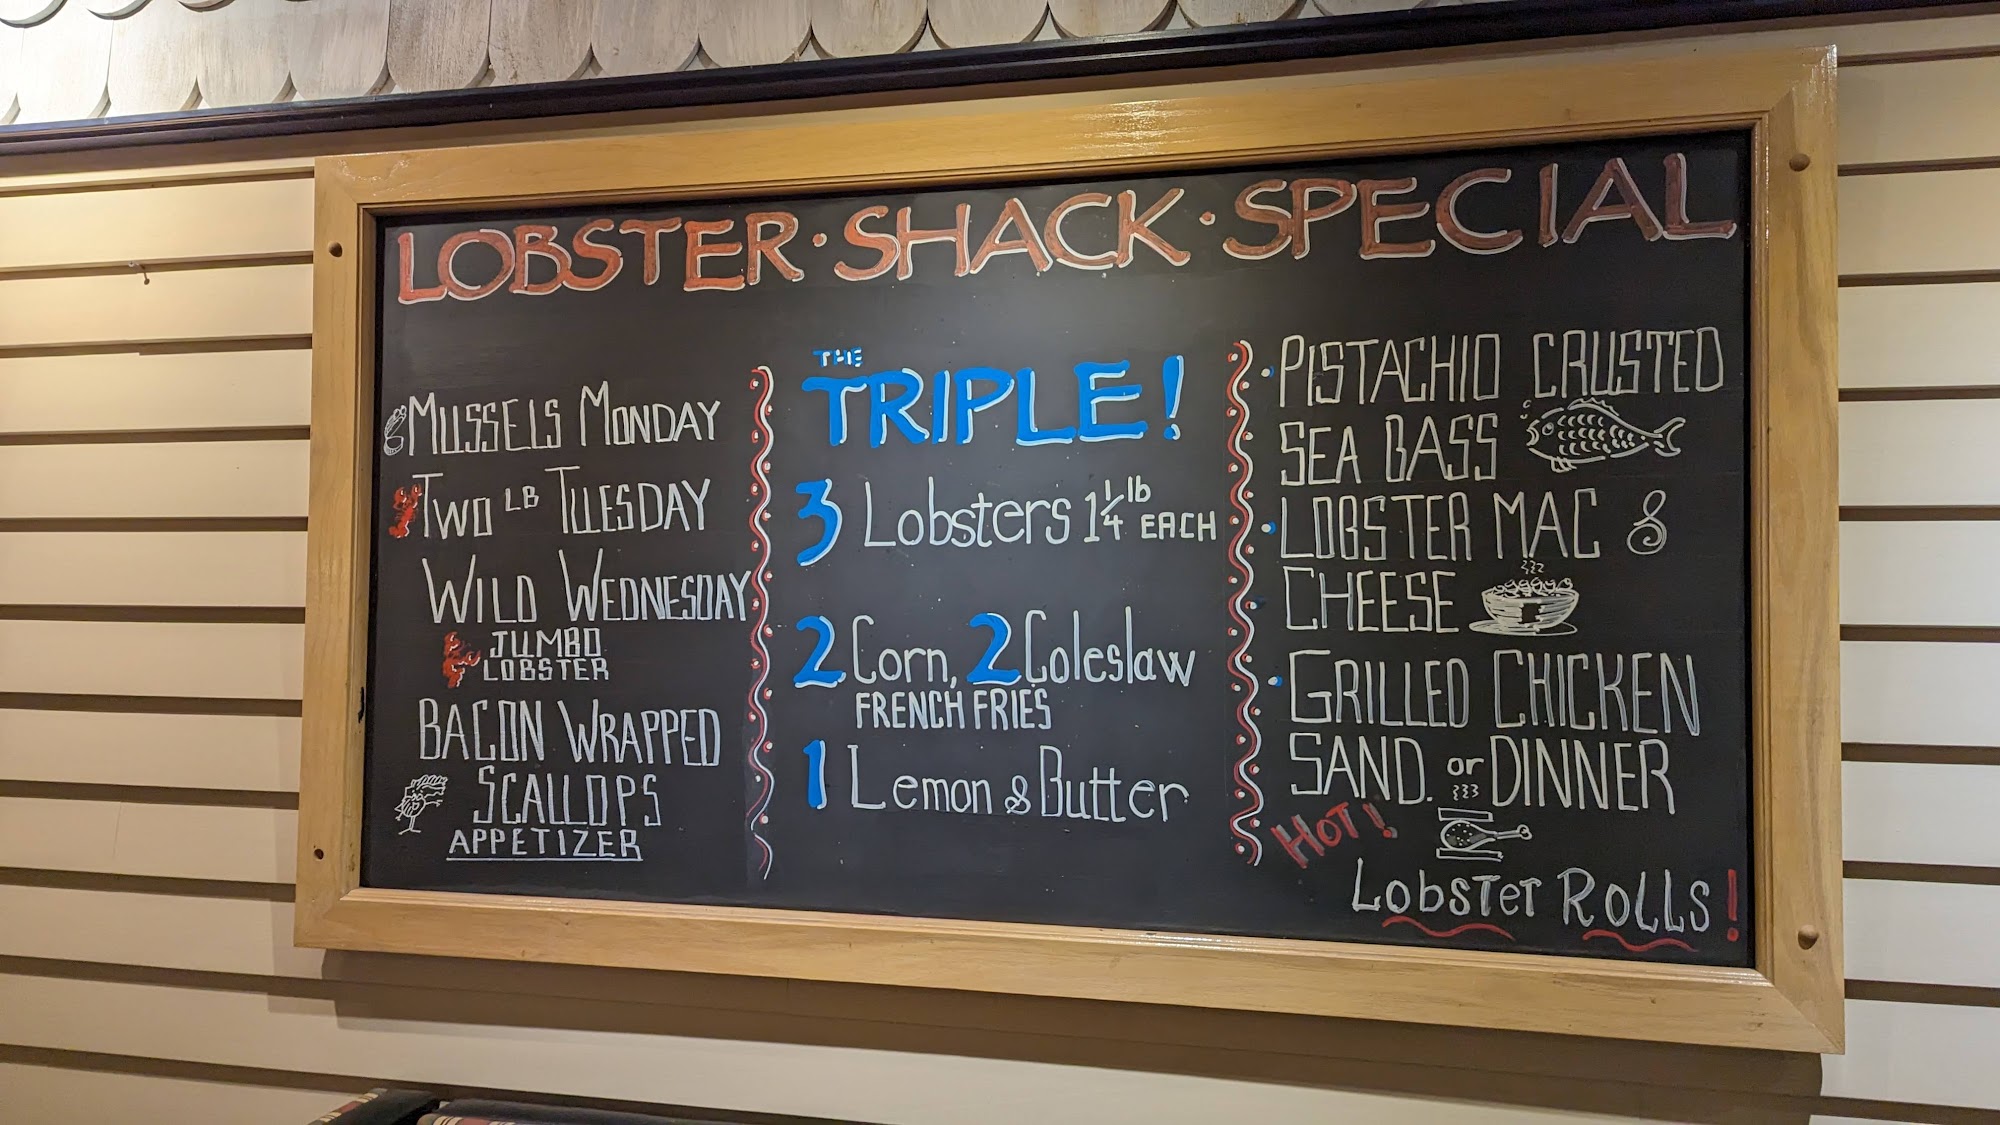 LOBSTER · SHACK · SPECIAL
MUSSELS MONDAY
TWO LB TUESDAY
WILD WEDNESDAY
JUMBO
LOBSTER
BACON WRAPPED
SCALLOPS
APPETIZER
THE
TRIPLE!
3 Lobsters 1 1/4 lb EACH
2 Corn, 2 Coleslaw
FRENCH FRIES
1 Lemon & Butter
• PISTACHIO CRUSTED
SEA BASS
• LOBSTER MAC &
CHEESE
• GRILLED CHICKEN
SAND. or DINNER
HOT!
LobsTer ROLLS!